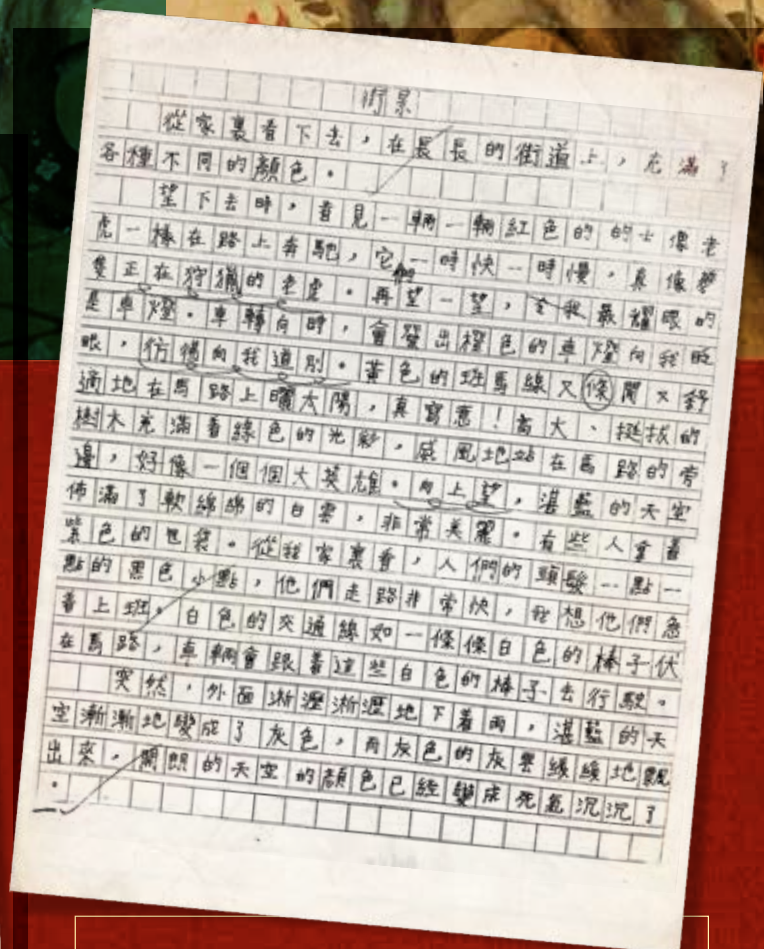 街景
從家裏看下去，在長長的街道上，充滿了
各種不同的顏色。
望下去時，看見一輛一輛紅色的的士像老
虎一樣在路上奔馳，它們一時快一時慢，真像
隻正在狩獵的老虎。再望一望，令我最耀眼的
是車燈。車轉向時，會發出橙色的車燈向我眨
眼，彷彿向我道別。黃色的班馬線又條閒又舒
適地在馬路上曬太陽，真寫意！高大、挺拔的
樹木充滿着綠色的光彩，威風地站在馬路的旁
邊，好像一個個大英雄。向上望，湛藍的天空
佈滿了軟綿綿的白雲，非常美麗。有些人拿着
紫色的包袋。從我家裏看，人們的頭髮一點一
點的黑色小點，他們走路非常快，我想他們急
着上班。白色的交通線如一條條白色的棒子伏
在馬路，車輛會跟着這些白色的棒子去行駛。
突然，外面淅瀝淅瀝地下着雨，湛藍的天
空漸漸地變成了灰色，而灰色的灰雲緩緩地飄
出來，開朗的天空的顏色已經變成死氣沉沉了
。